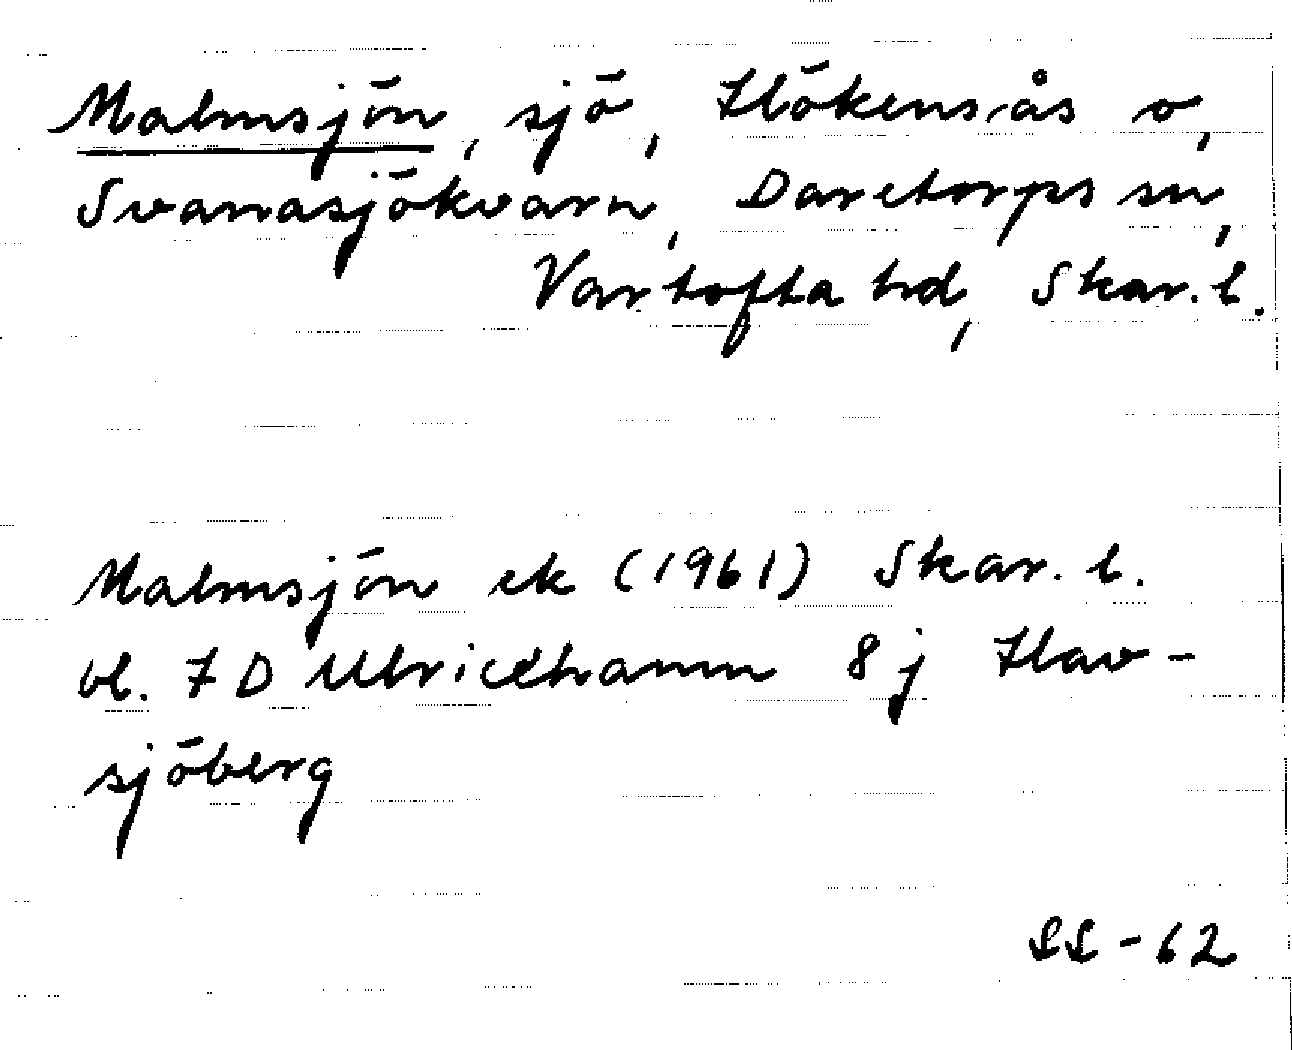 Malmsjön, sjö, Hökensås o,
Svanasjökvarn, Daretorps sn,
Vartofta hd, Skar. l.
Malmsjön ek (1961) Skar. l.
bl. 7 D Ulricehamn 8 j Hav-
sjöberg
SS - 62